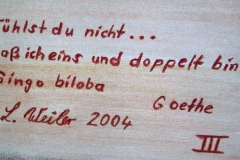 ühlst du nicht...
aß ich eins und doppelt bin
Gingo biloba
Goethe
L. Weiler 2004
III